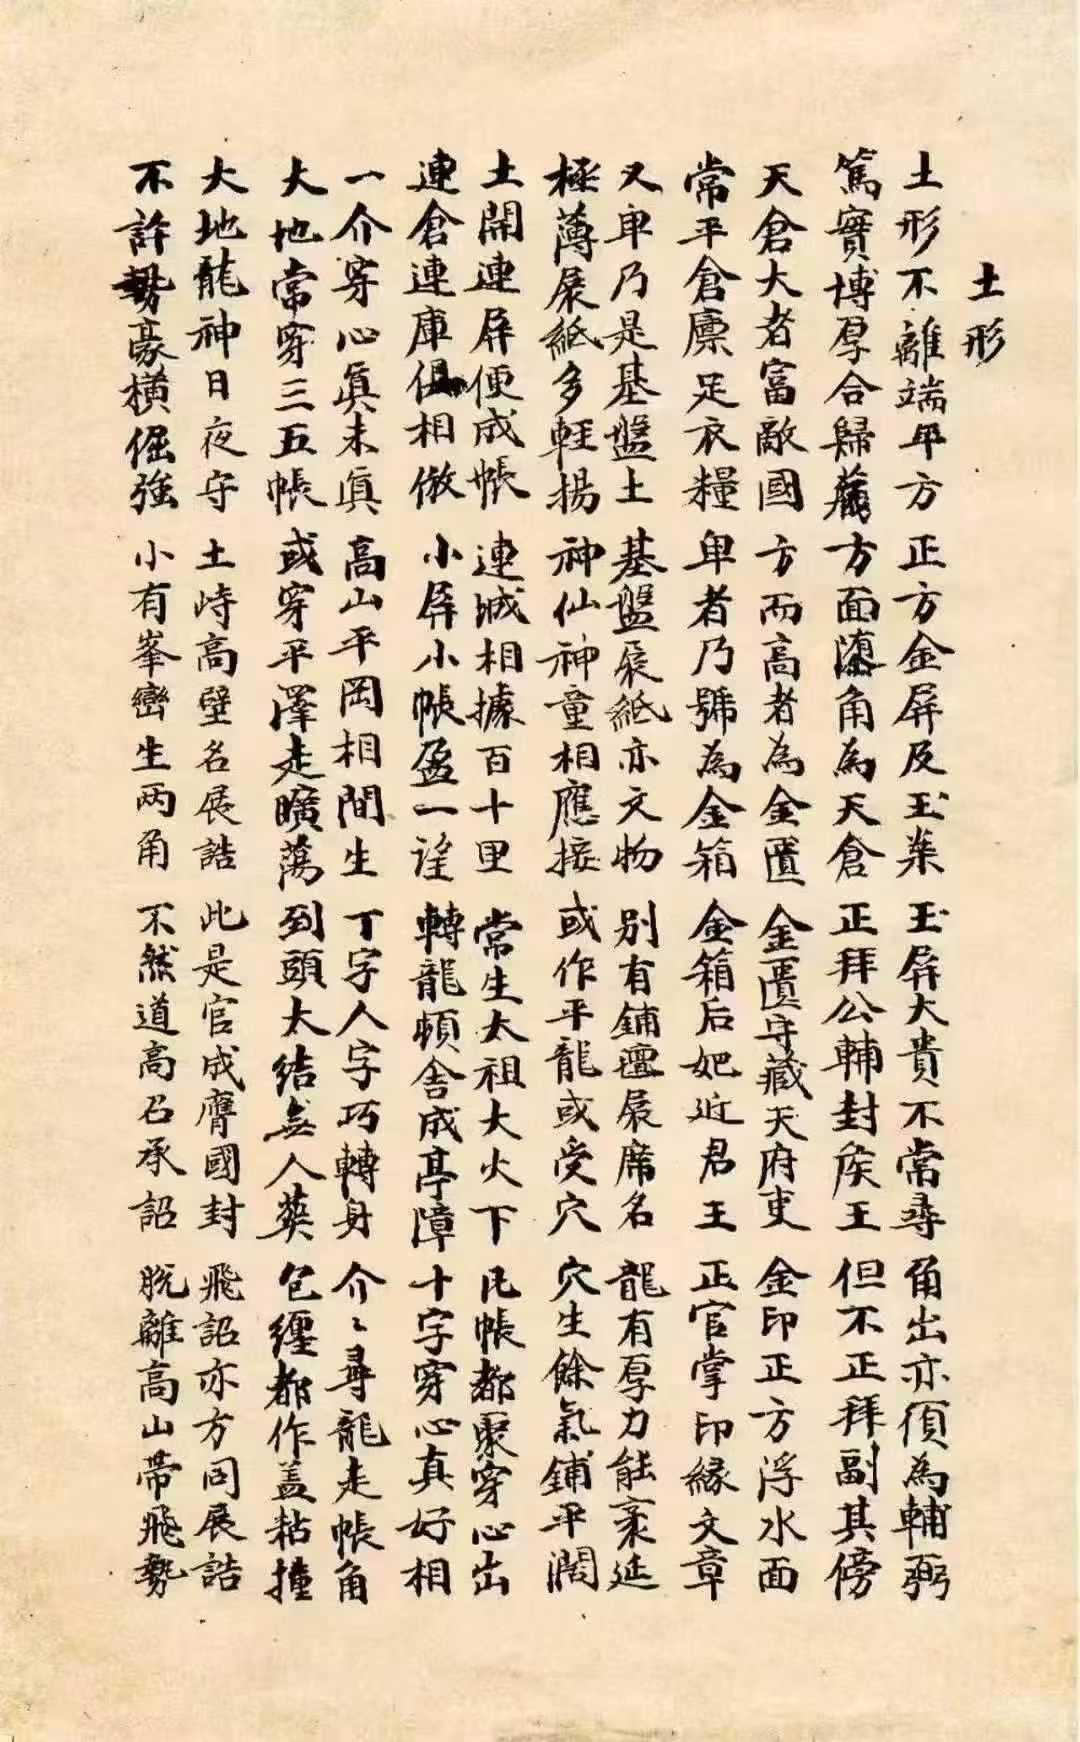 土形
土形不離端平方 正方金屏及玉案 玉屏大貴不常尋 角出亦須為輔弼
篤實博厚合歸藏 方面湊角為天倉 正拜公輔封侯王 但不正拜副其傍
天倉大者富敵國 方而高者為金匱 金匱守藏天府吏 金印正方浮水面
常平倉廩足衣糧 卑者乃號為金箱 金箱后妃近君王 正官掌印緣文章
又卑乃是基盤土 基盤展紙亦文物 別有鋪氊展席名 龍有厚力能袤延
極薄展紙多輕揚 神仙神童相應接 或作平龍或受穴 穴生餘氣鋪平濶
土開連屏便成帳 連城相據百十里 常生太祖大火下 凡帳都要穿心出
連倉連庫俱相倣 小屏小帳盈一望 轉龍頓舍成亭障 十字穿心真好相
一介穿心眞未眞 高山平岡相間生 丁字人字巧轉身 介〻尋龍走帳角
大地常穿三五帳 或穿平澤走曠蕩 到頭太結無人葬 包纒都作盖粘撞
大地龍神日夜守 土峙高壁名展誥 此是官成膺國封 飛詔亦方同展誥
不許勢豪橫倔強 小有峯巒生两角 不然道高召承詔 脫離高山帶飛勢